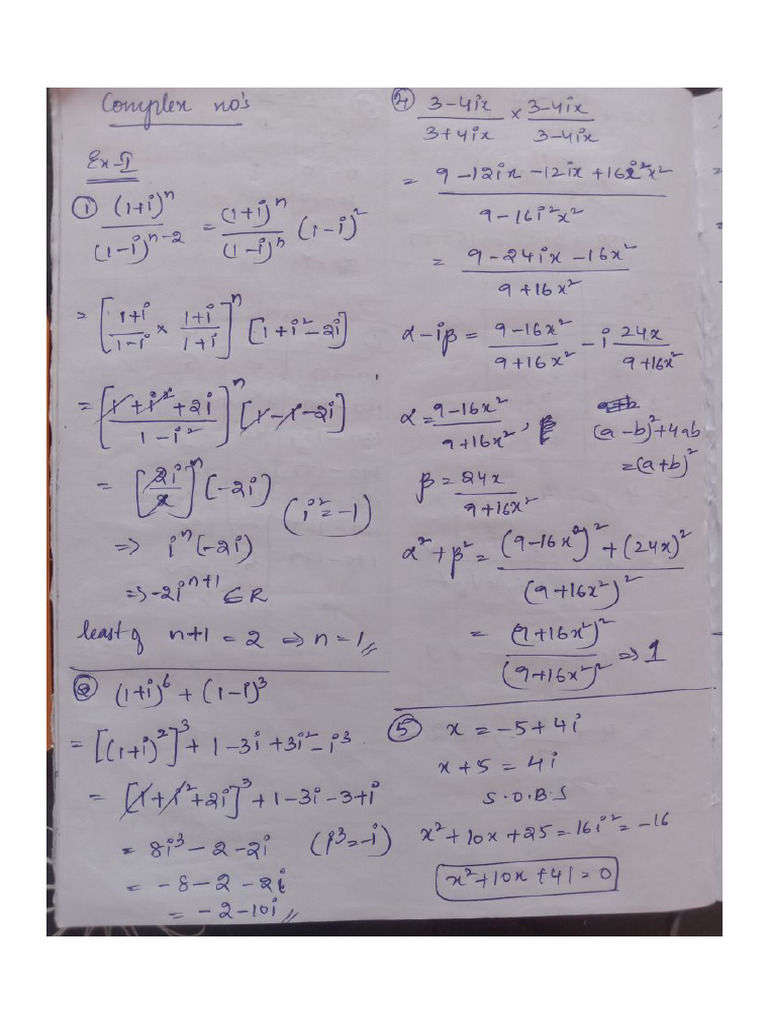 Complex no's
Ex-I
① (1+i)^n / (1-i)^(n-2) = (1+i)^n / (1-i)^n (1-i)^2
= [1+i / 1-i × 1+i / 1+i]^n [1+i^2-2i]
= [1+i^2+2i / 1-i^2]^n [1-1-2i]
= [2i / 2]^n (-2i) (i^2=-1)
=> i^n(-2i)
=> -2i^(n+1) ∈ R
least of n+1 = 2 => n=1
② (1+i)^6 + (1-i)^3
= [(1+i)^2]^3 + 1-3i+3i^2-i^3
= [1+i^2+2i]^3 + 1-3i-3+i
= 8i^3-2-2i (i^3=-i)
= -8-2-2i
= -2-10i
④ 3-4ix / 3+4ix × 3-4ix / 3-4ix
= 9-12ix-12ix+16i^2x^2 / 9-16i^2x^2
= 9-24ix-16x^2 / 9+16x^2
α-iβ = 9-16x^2 / 9+16x^2 - i 24x / 9+16x^2
α = 9-16x^2 / 9+16x^2,
(a-b)^2+4ab
=(a+b)^2
β = 24x / 9+16x^2
α^2+β^2 = (9-16x^2)^2+(24x)^2 / (9+16x^2)^2
= (9+16x^2)^2 / (9+16x^2)^2 => 1
⑤ x = -5+4i
x+5 = 4i
S.O.B.S
x^2+10x+25=16i^2=-16
x^2+10x+41=0